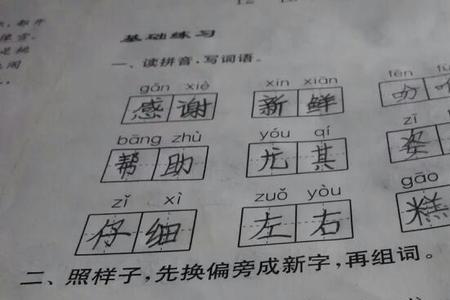 都开
基础练习
一、读拼音，写词语。
gǎn xiè xīn xiān fēn
感谢 新鲜
bāng zhù yóu qí zī
帮助 尤其 姿
zǐ xì zuǒ yòu gāo
仔细 左右 糕
二、照样子，先换偏旁成新字，再组词。